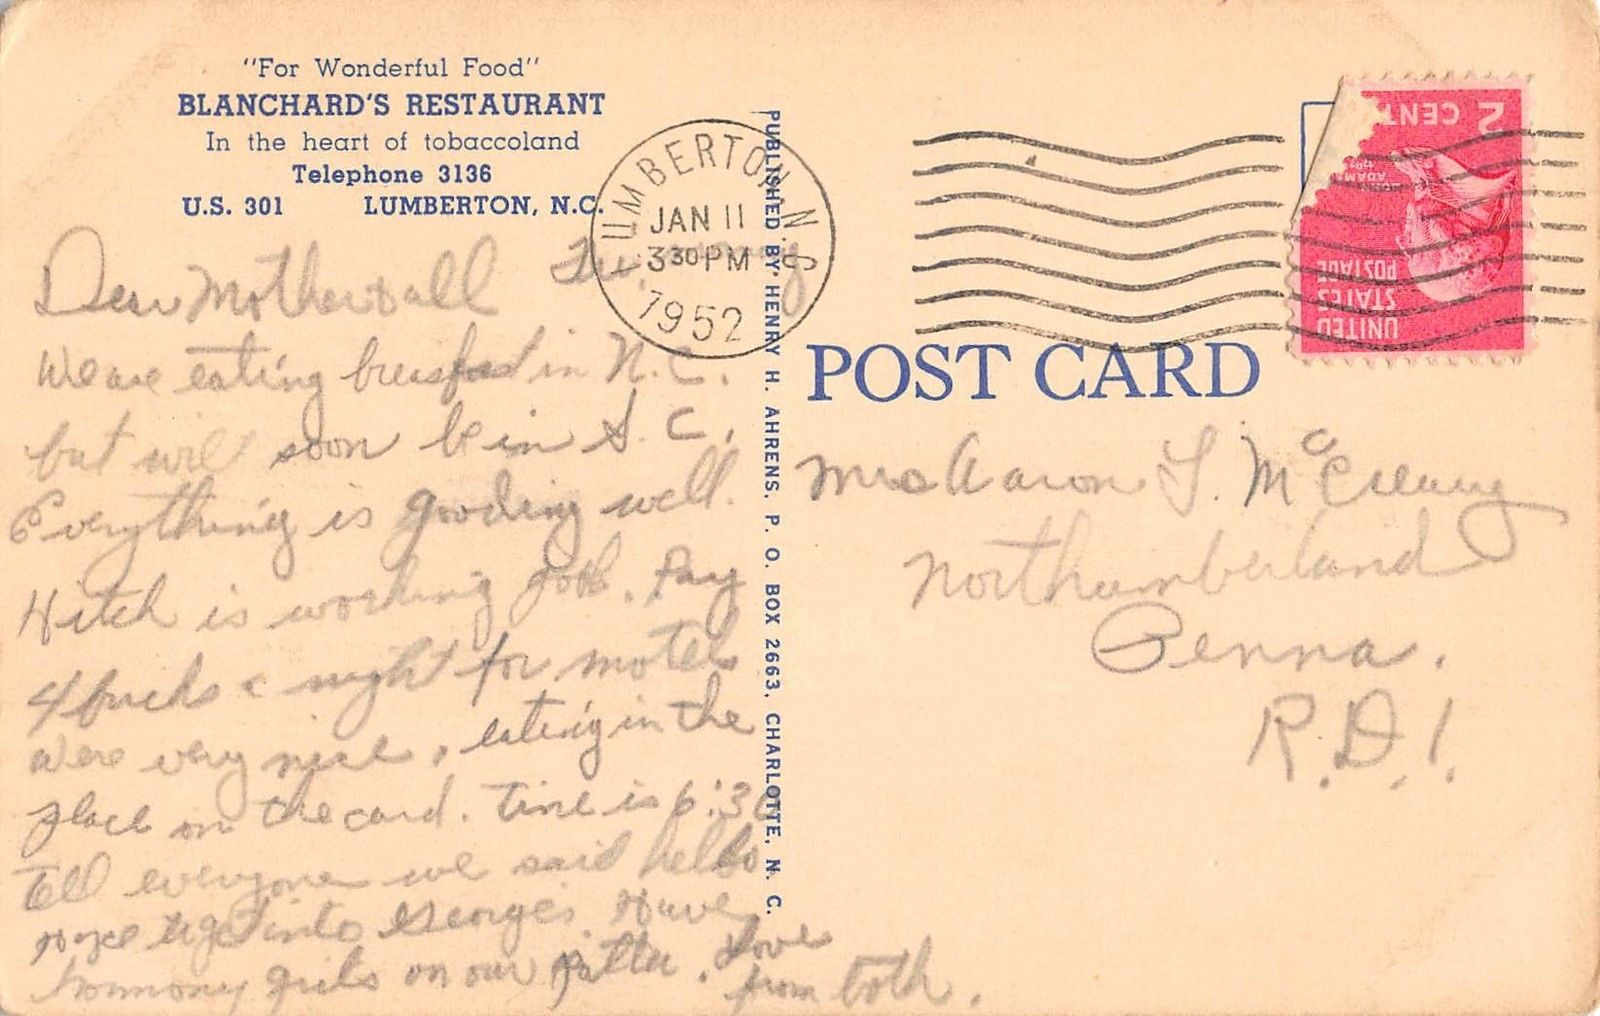 "For Wonderful Food"
BLANCHARD'S RESTAURANT
In the heart of tobaccoland
Telephone 3136
U.S. 301 LUMBERTON, N.C.
LUMBERTON N S
JAN 11
330PM
1952
PUBLISHED BY HENRY H. AHRENS, P. O. BOX 2663, CHARLOTTE, N. C.
2 CENT
ADAMS
UNITED
STATES
POSTAGE
POST CARD
Dear Mother & all
We are eating in N.C.
but will soon be in S. C.
Everything is gooding well.
Hitch is working good. Pay
4 bucks a night for motels
were very nice, eating in the
place on the card. Time is 6:30
Tell everyone we said hello
to get into Georges. Have
girls on our . Love
from both.
Mrs Aaron
Northumberland
Penna.
R.D.1.